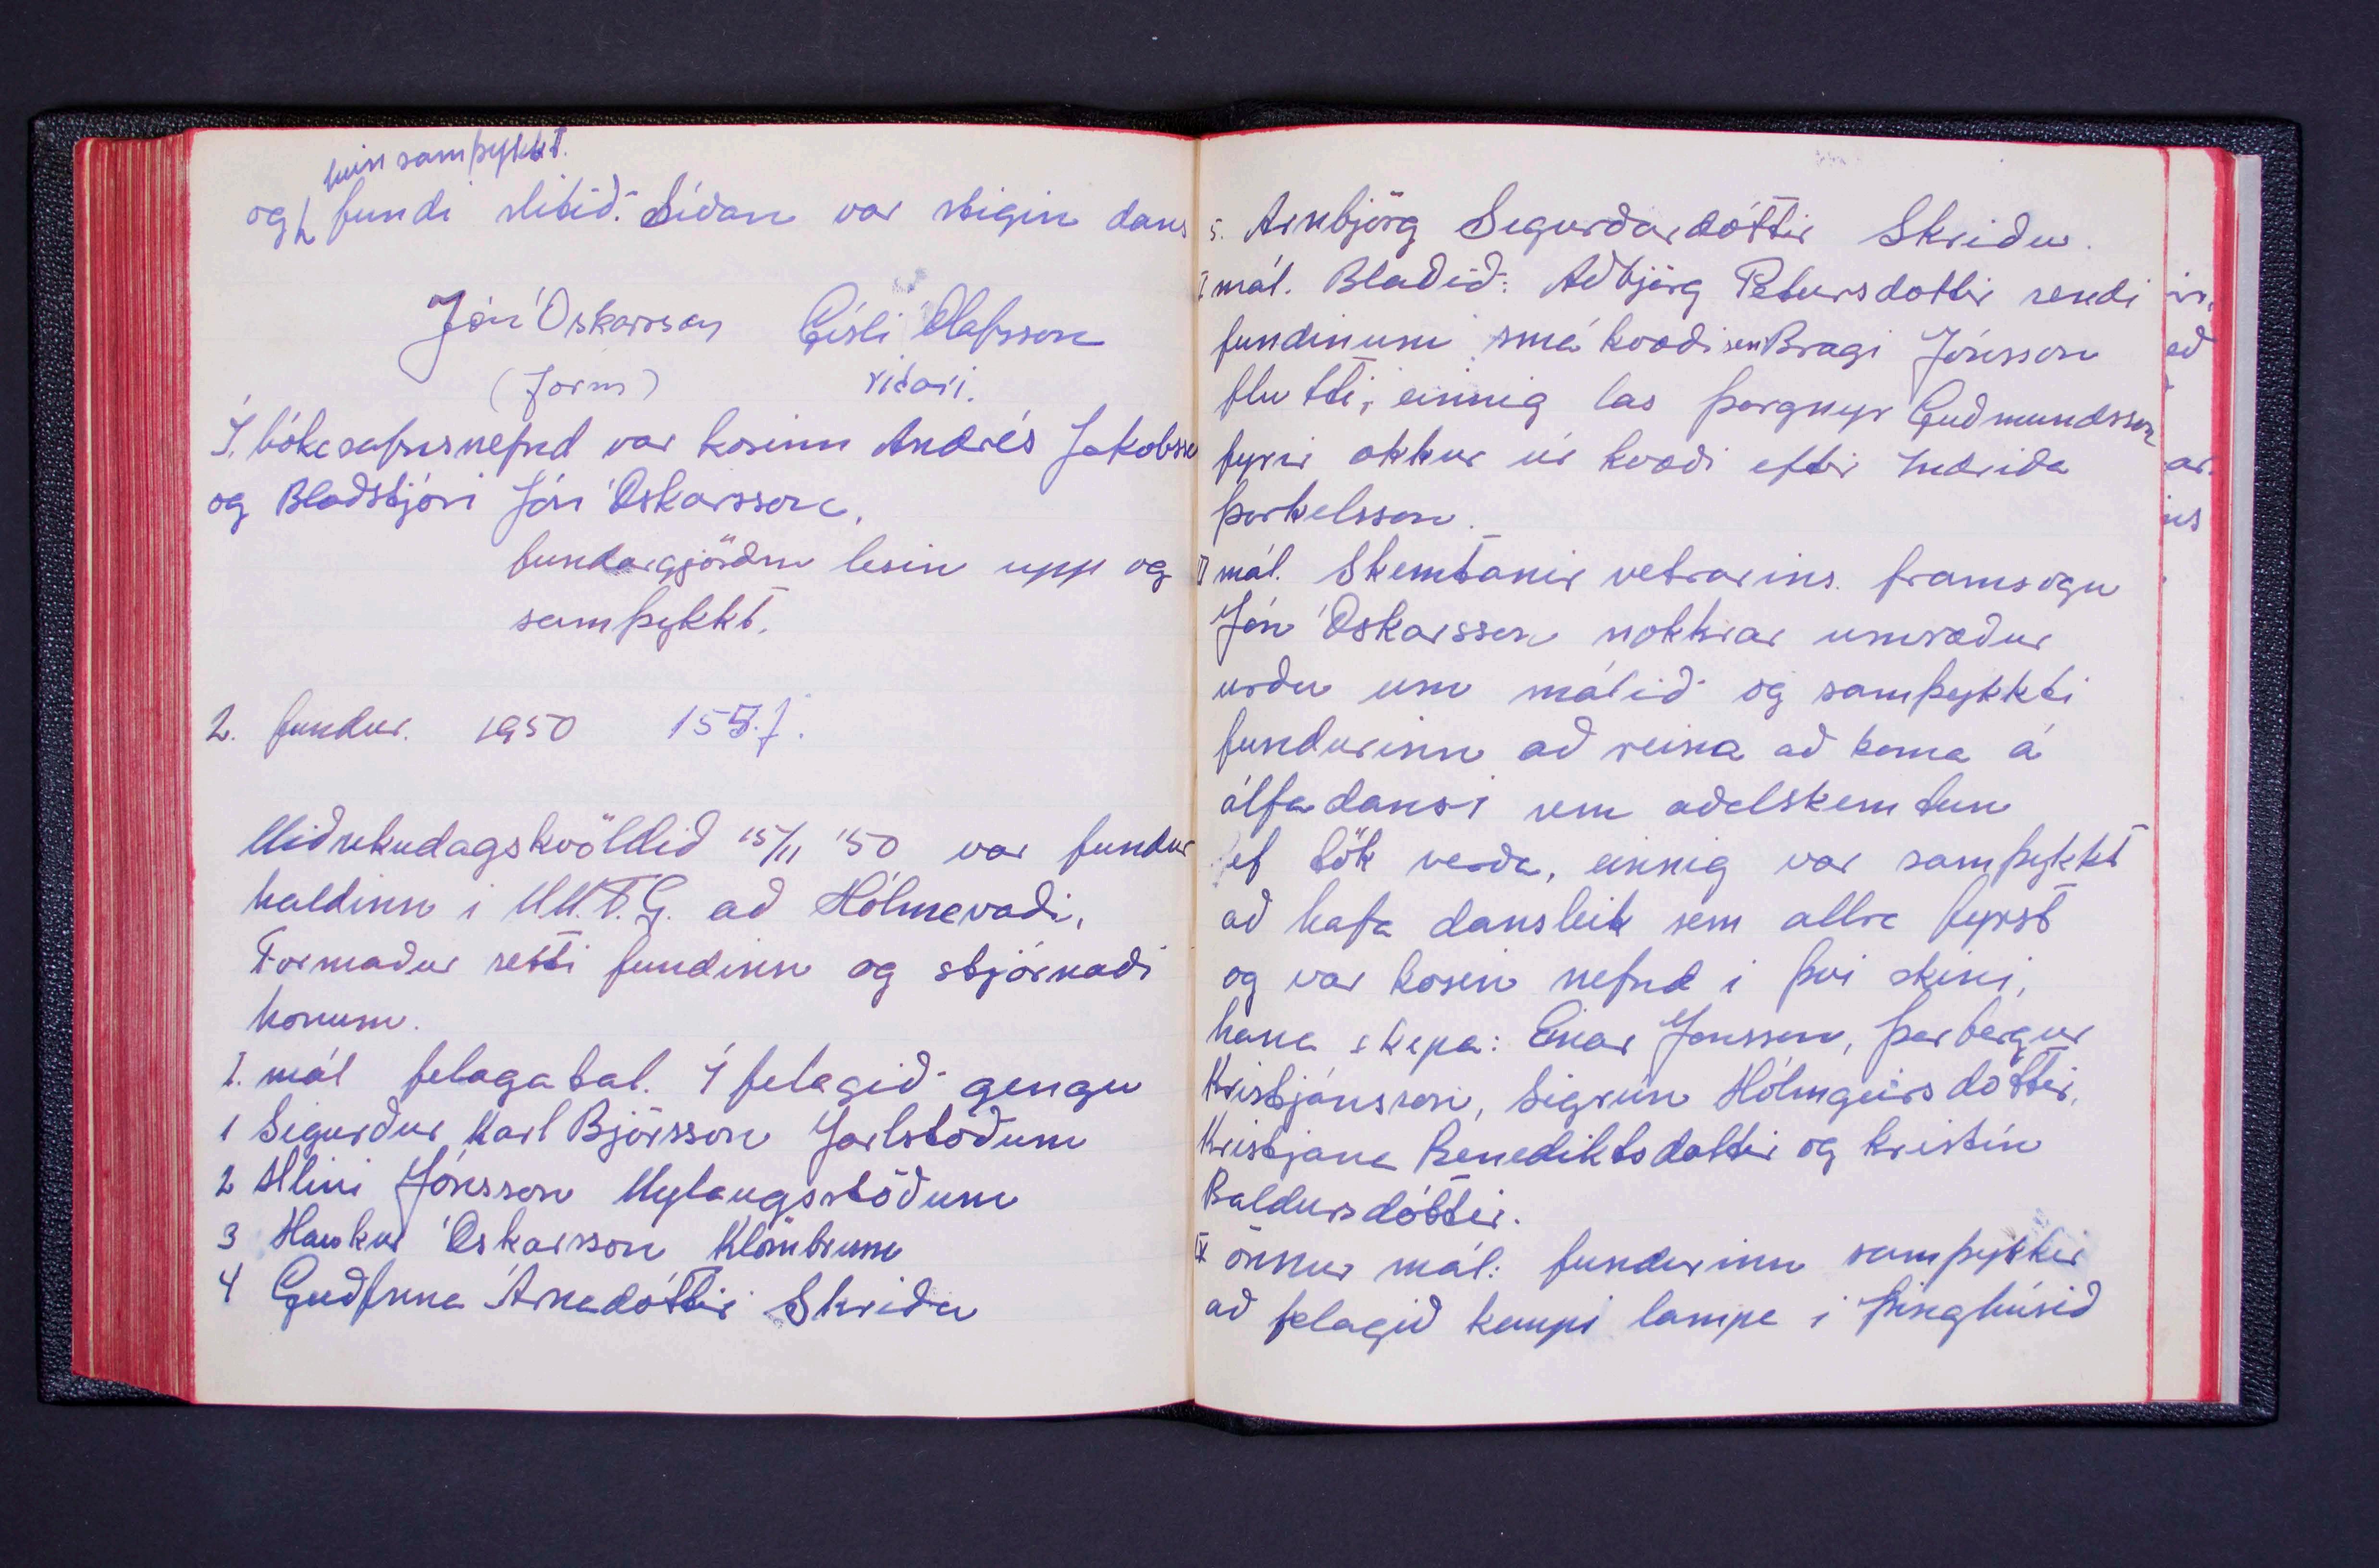 hún samþykkt.
og fundi slitið. Síðan var stigin dans
Jón Óskarsson Gísli Ólafsson
(form) ritari.
Í bókasafnsnefnd var kosinn Andrés Jakobsso
og Blaðstjóri Jón Óskarsson.
fundargjörðin lesin upp og
samþykkt.
2. fundur. 1950 155. f.
Miðvikudagskvöldið 15/11 '50 var fundur
haldinn i U.M.F.G. að Hólmavaði.
Formaður setti fundinn og stjórnaði
honum.
I. mál felagatal. Í felagið gengu
1 Sigurður Karl Björsson Jarlstoðum
2 Hlini Jónsson Mýlaugsstöðum
3 Haukur Óskarsson Klömbrum
4 Guðfinna Árnadóttir Skriðu
5. Arnbjörg Sigurðardóttir Skriðu.
mál. Blaðið: Aðbjörg Petursdottir sendi
fundinum smá kvæði sem Bragi Jónsson
flutti, einnig las Þorgnyr Guðmundsson
fyrir okkur úr kvæði eftir Indriða
Þorkelsson.
mál. Skemtanir vetrarins. framsogu
Jón Óskarsson nokkrar umræður
urðu um málið og samþykkti
fundurinn að reina að koma á
álfadansi sem aðalskemtun
ef tök verða, einnig var samþykkt
að hafa dansleik sem allra fyrst
og var kosin nefnd i þvi skini,
hana skipa: Einar Jonsson, Þorbergur
Kristjánsson, Sigrún Hólmgeirsdottir,
Kristjana Benediktsdottir og Kristín
Baldursdóttir.
IV önnur mál: fundurinn samþykkir
að felagið kaupi lampa i þinghúsið